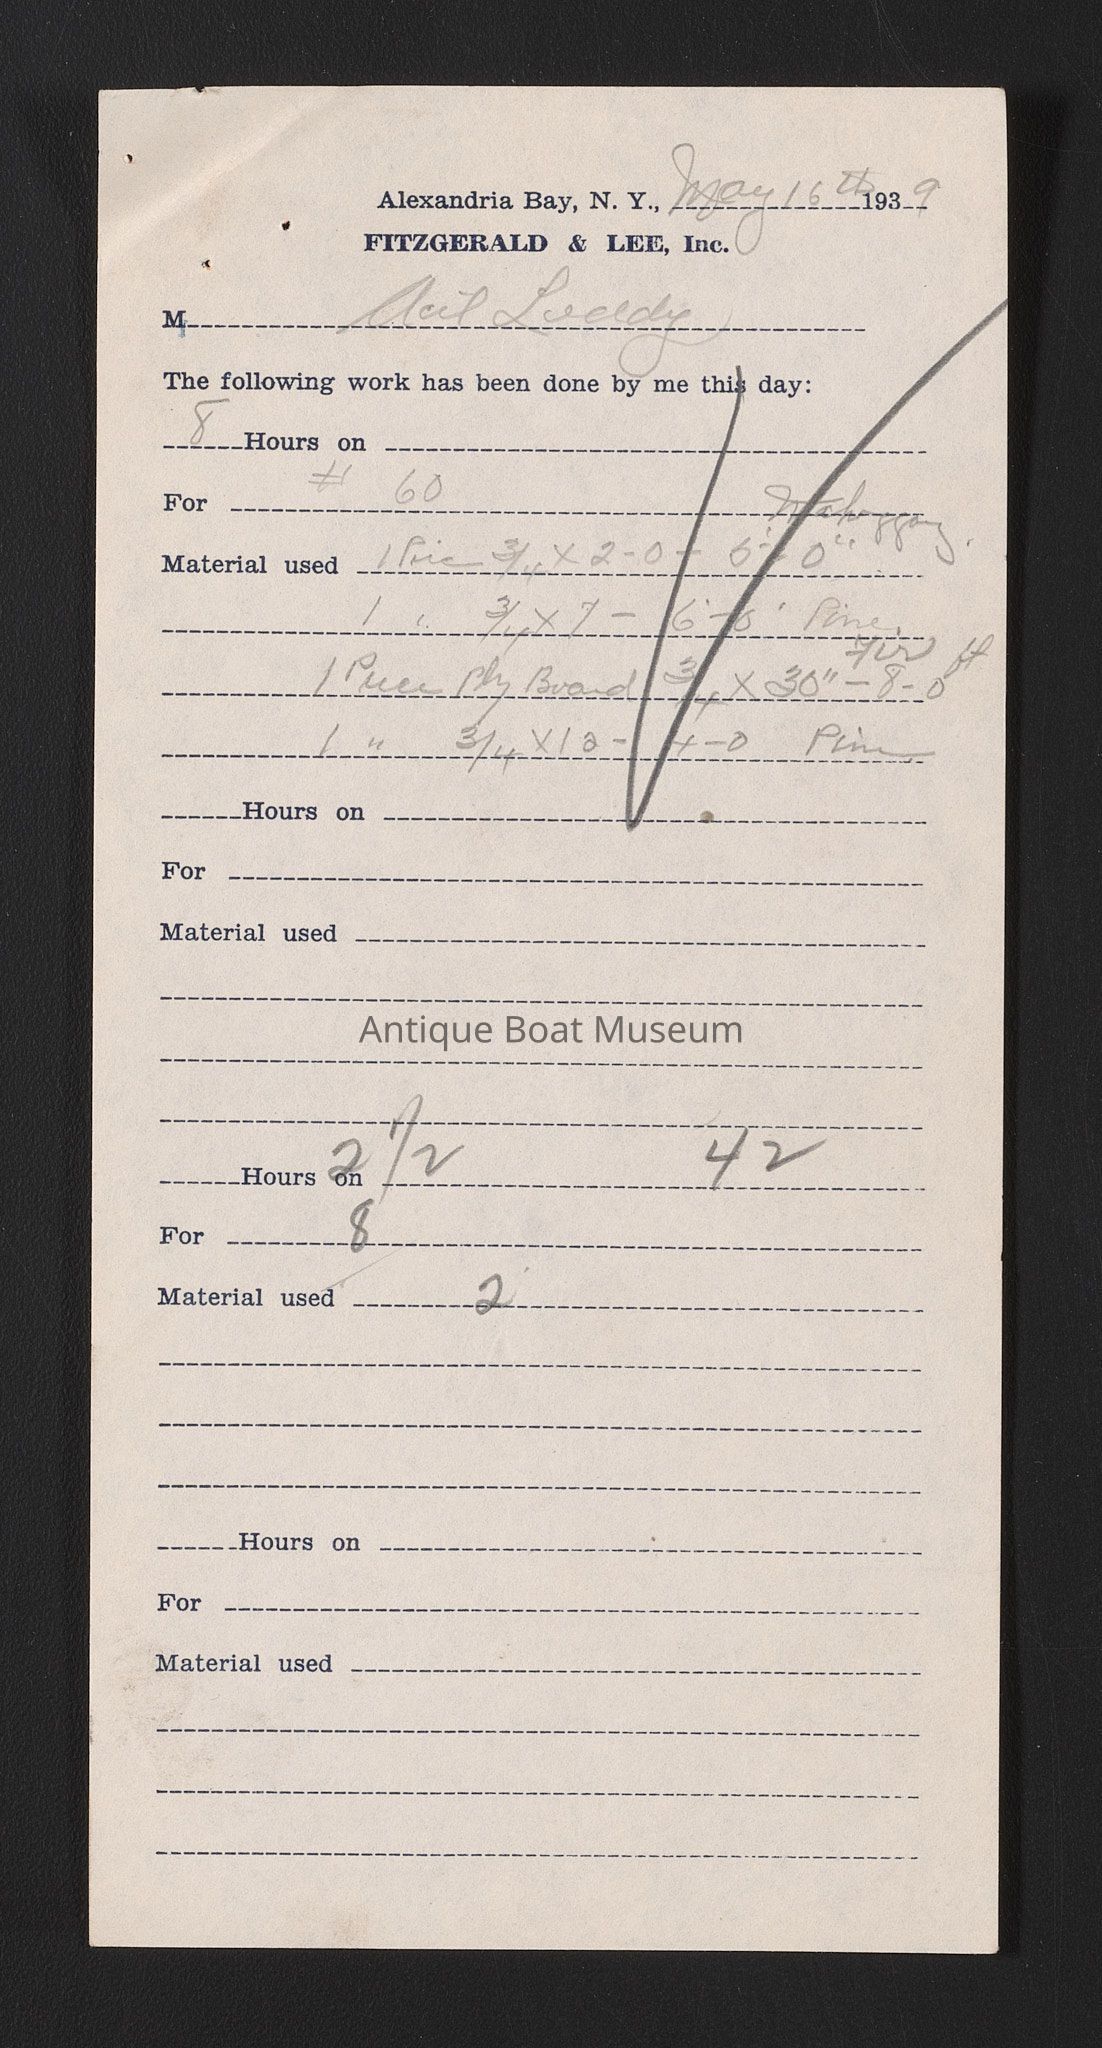 Alexandria Bay, N. Y., May 16th 1939
FITZGERALD & LEE, Inc.
M Neil Luddy
The following work has been done by me this day:
8 Hours on
For # 60
Mahoggany.
Material used 1 Piece 3/4 X 2-0 - 6'-0"
1 " 3/4 X 7 - 6'-0' Pine.
Fir ft
1 Piece Ply Board 3/4 X 30" - 8-0
1 " 3/4 X 12 - 4-0 Pine
Hours on
For
Material used
Antique Boat Museum
Hours on 2 1/2 42
For 8
Material used 2
Hours on
For
Material used